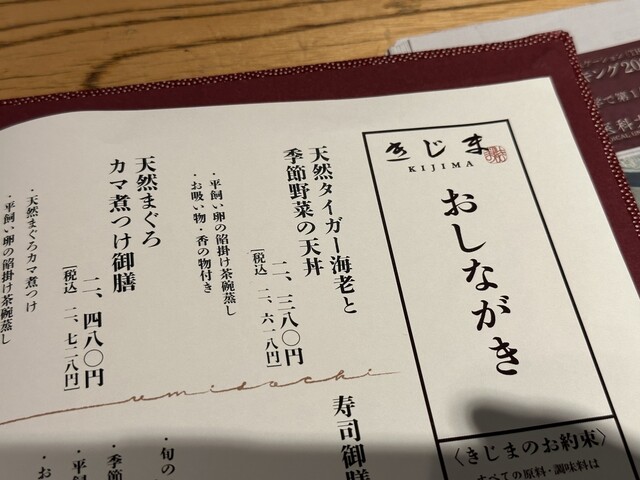 きじま
KIJIMA
おしながき
〈きじまのお約束〉
すべての原料・調味料は
天然タイガー海老と
季節野菜の天丼
二、三八〇円
[税込 二、六一八円]
・平飼い卵の餡掛け茶碗蒸し
・お吸い物・香の物付き
天然まぐろ
カマ煮つけ御膳
二、四八〇円
[税込 二、七二八円]
・天然まぐろカマ煮つけ
・平飼い卵の餡掛け茶碗蒸し
umidachi
寿司御膳
・旬の
・季節
・平飼
・お
キング20
で第1
医科